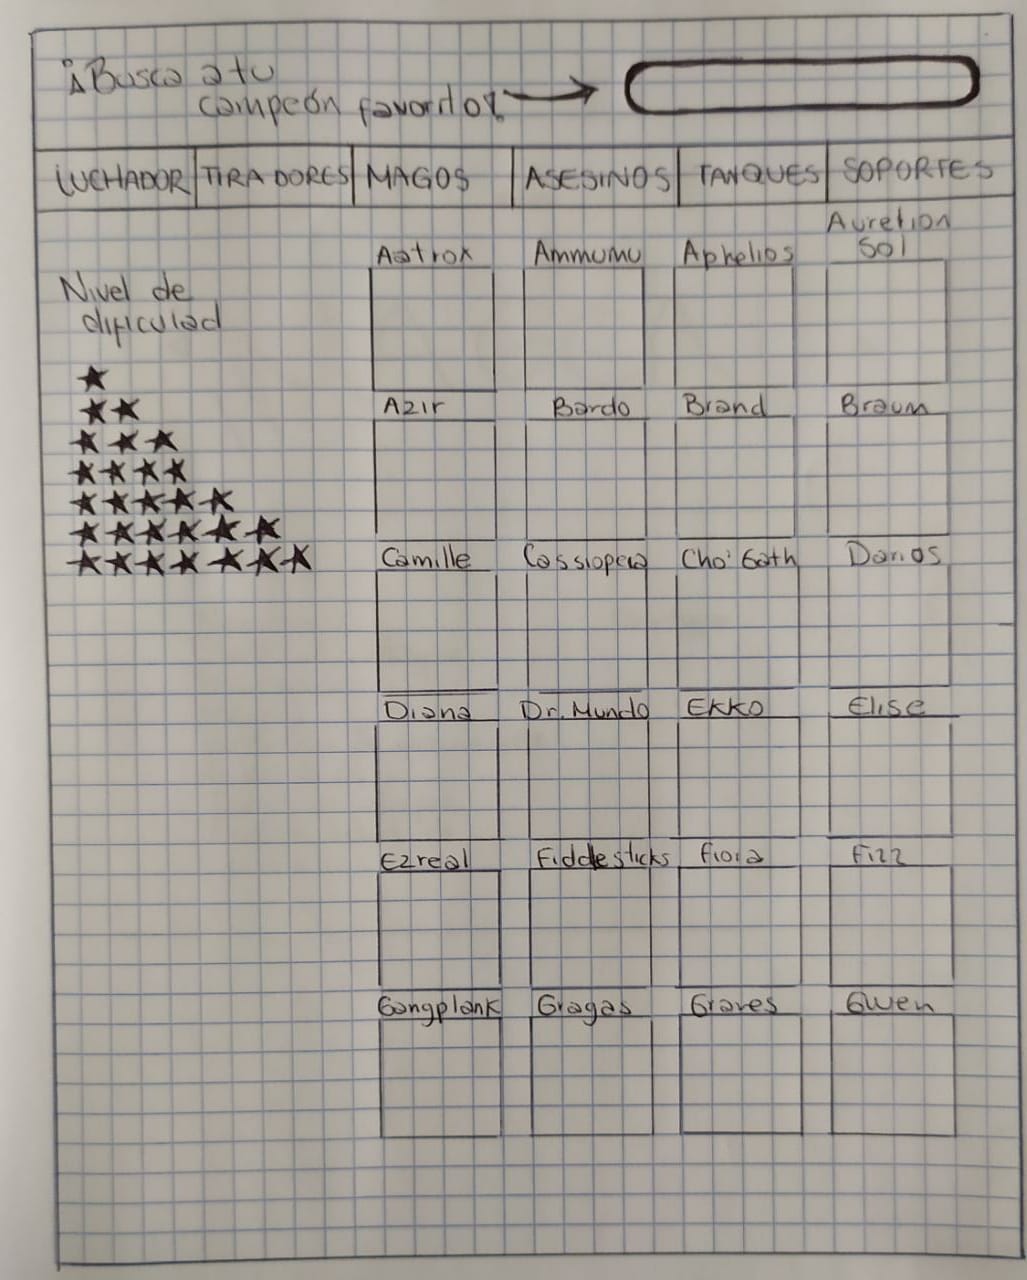 ¡Busca a tu
campeón favorito!
LUCHADOR TIRADORES MAGOS ASESINOS TANQUES SOPORTES
Nivel de
dificulad
Aatrox Ammumu Aphelios Aurelion Sol
Azir Bardo Brand Braum
Camille Cassiopeia Cho'Gath Darios
Diana Dr. Mundo EKKO Elise
Ezreal Fiddlesticks Fiora Fizz
Gangplank Gragas Graves Gwen